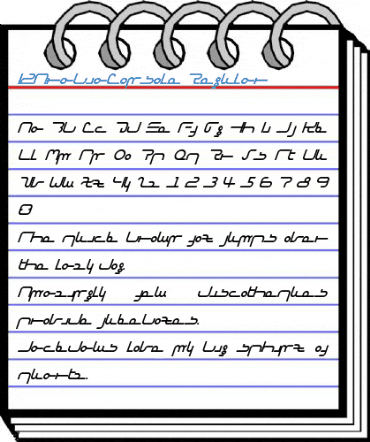 Regular
Aa Bb Cc Dd Ee Ff Gg Hh Ii Jj Kk
Ll Mm Nn Oo Pp Qq Rr Ss Tt Uu
Vv Ww Xx Yy Zz 1 2 3 4 5 6 7 8 9
0
The quick brown fox jumps over
the lazy dog
Amazingly few discotheques
provide jukeboxes.
Jackdaws love my big sphinx of
quartz.